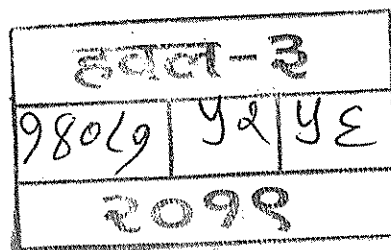 हवल-३
१४०८१ ५२ ५६
२०१९